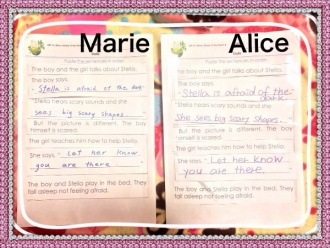 Marie
Alice
The boy and the girl talk about Stella.
The boy says,
"Stella is afraid of the dark
Stella hears scary sounds and she
sees big scary shapes.
But the picture is different. The boy
himself is scared.
The girl teaches him how to help Stella.
She says, "Let her know
you are there
The boy and Stella play in the bed. They
fall asleep not feeling afraid.
The boy and the girl talk about Stella.
The boy says,
"Stella is afraid of the
dark
Stella hears scary sounds and
She sees big scary shapes.
But the picture is different. The boy
himself is scared.
The girl teaches him how to help Stella.
She says, "Let her know
you are there.
The boy and Stella play in the bed. They
fall asleep not feeling afraid.